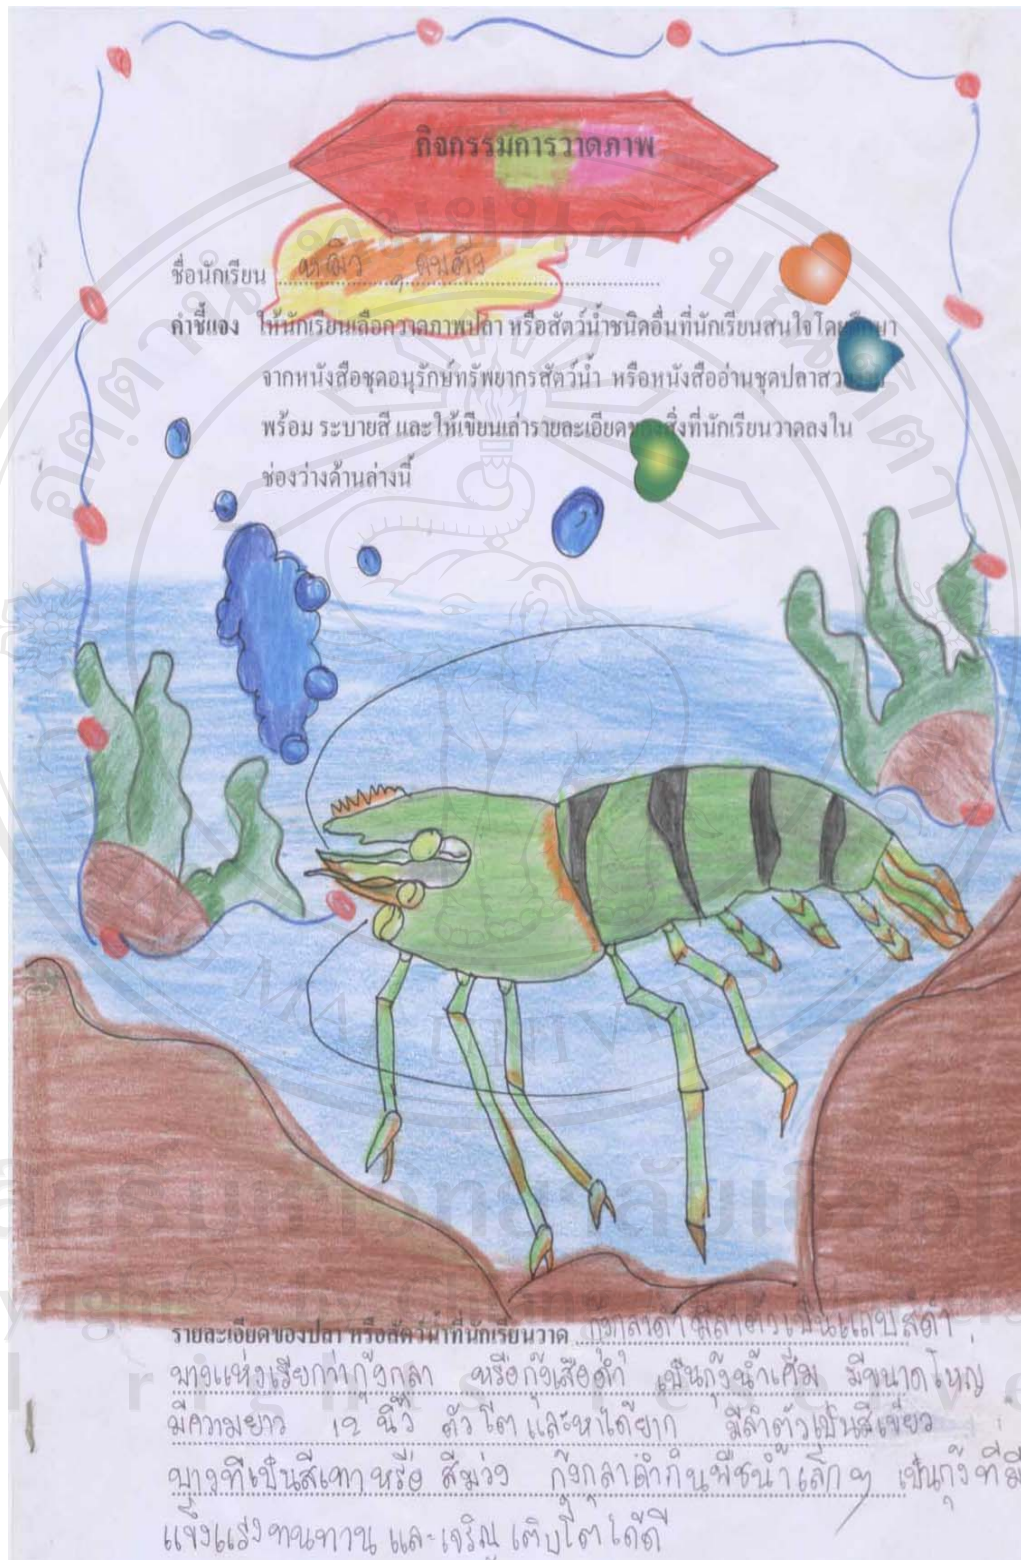 กิจกรรมการวาดภาพ
ชื่อนักเรียน
คำชี้แจง ให้นักเรียนเลือกวาดภาพปลา หรือสัตว์น้ำชนิดอื่นที่นักเรียนสนใจโดยศึกษา
จากหนังสือชุดอนุรักษ์ทรัพยากรสัตว์น้ำ หรือหนังสืออ่านชุดปลา
พร้อม ระบายสี และให้เขียนเล่ารายละเอียดของสิ่งที่นักเรียนวาดลงใน
ช่องว่างด้านล่างนี้
รายละเอียดของปลา หรือสัตว์น้ำที่นักเรียนวาด กุ้งกุลาดำมีลำตัวเป็นแถบสีดำ
บางแห่งเรียกว่ากุ้งกุลา หรือกุ้งเสือดำ เป็นกุ้งน้ำเค็ม มีขนาดใหญ่
มีความยาว 12 นิ้ว ตัวโต และหาได้ยาก มีลำตัวเป็นสีเขียว
บางทีเป็นสีเทา หรือ สีม่วง กุ้งกุลาดำกินพืชน้ำเล็กๆ เป็นกุ้งที่มี
แข็งแรงทนทาน และเจริญเติบโตได้ดี